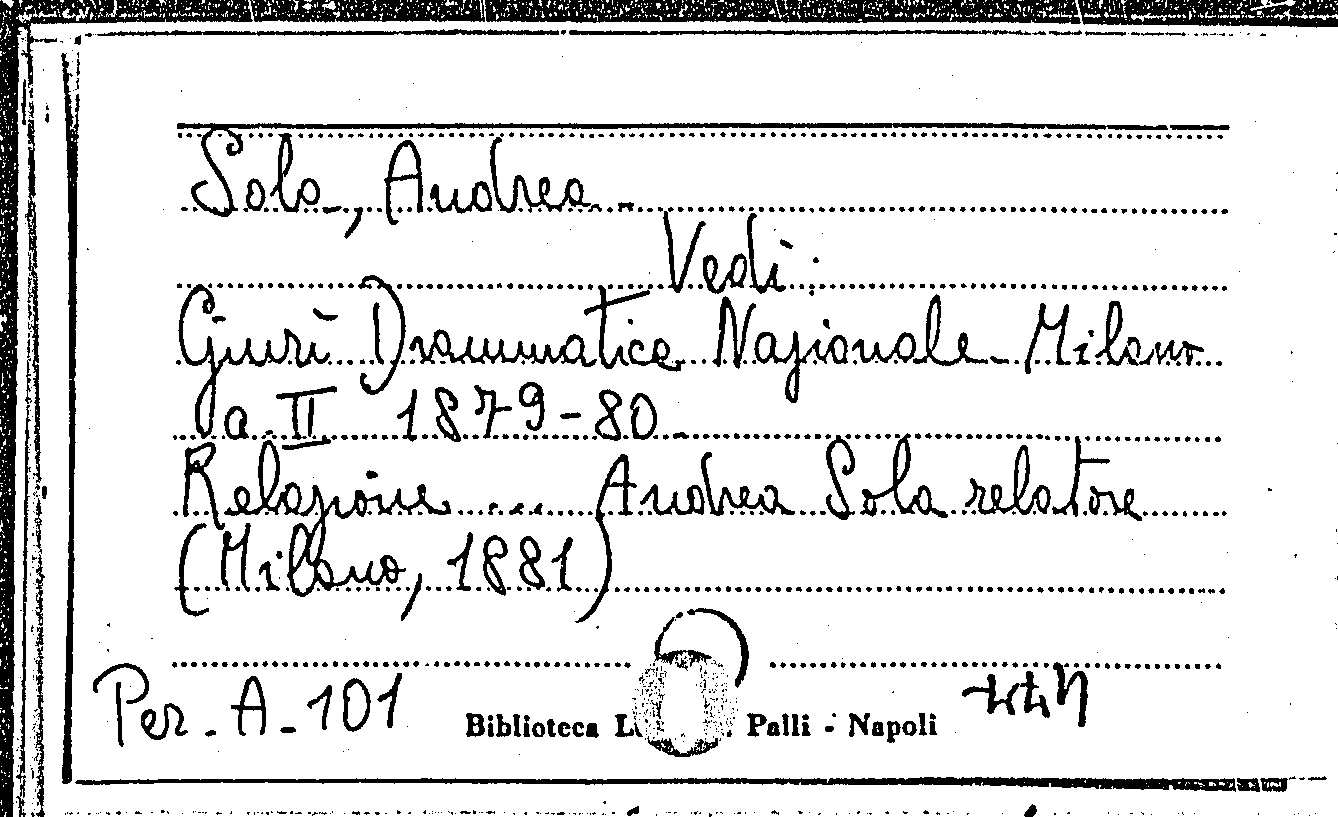 Sola, Andrea.
Vedi:
Giurì Drammatico Nazionale Milano
a. II 1879-80.
Relazione ... Andrea Sola relatore
(Milano, 1881)
Per. A-101 Biblioteca Palli - Napoli